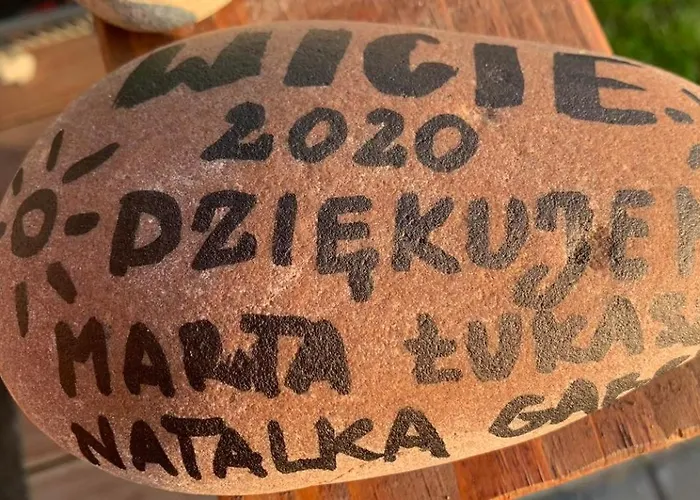 WICIE
2020
DZIĘKUJEM
MARTA ŁUKAS
NATALKA